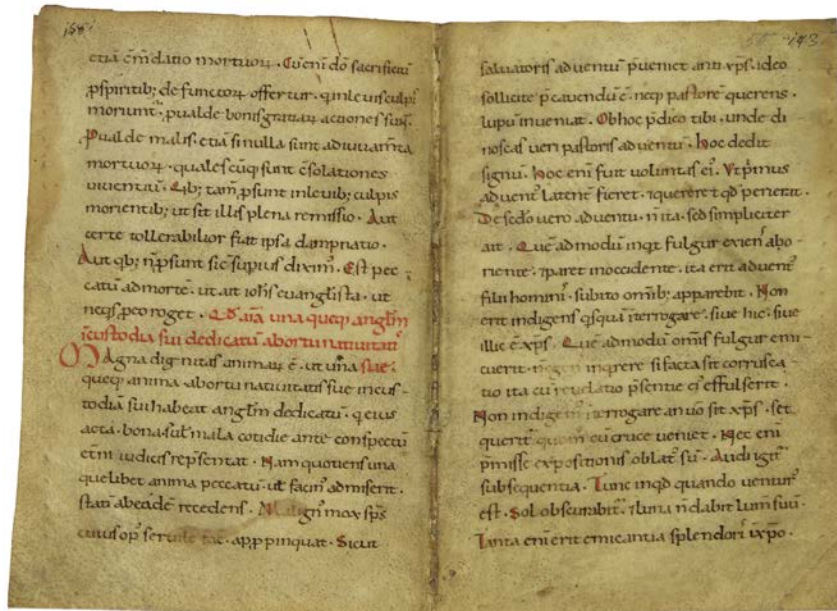 etiā ēm̄datio mortuoꝝ. Cū eni dō sacrificiū
ꝓ spiritib; defunctoꝝ offertur. q̄ in leuiscul̄pis
moriunt̄. ꝓ ualde bonis gratiaꝝ actiones sunt.
Pualde malis. etiā si nulla sunt adiuuam̄ta
mortuoꝝ. qualescūq; sunt c̄solationes
uiuentiū. Qib; tam̄ ꝓsunt in leuib; culpis
morientib; ut sit illis plena remissio. Aut
certe tollerabilior fiat ipsa dampnatio.
Aut qb; n̄ ꝓsunt sic̄ supius diximꝰ. Est pec
catū ad mortē. ut ait ioh̄s euanglista. ut
neq̄s ꝓ eo roget. Qd̄ aīa una queq; anglm̄
ī custodia sui dedicatū abortu natiuitatis
Magna dignitas animaꝝ ē. ut una
queq; anima abortu natiuitatis sue in cus
todiā sui habeat anglm̄ dedicatū. q̄ eius
acta. bona. ul̄ mala cotidie ante conspectū
et̄ni iudicis rep̄sentat. Nam quotiens una
quelibet anima peccatū. ul̄ facinꝰ admiserit.
statī abea idē recedens. Malignꝰ mox sp̄s
cuius opꝰ seruile fac̄. appꝓpinquat. Sicut
saluatoris aduentū p̄ueniet antixp̄s. ideo
sollicite p̄cauendū ē. neq; pastorē querens.
lupū inueniat. Ob hoc p̄dico tibi. unde di
noscas ueri pastoris aduentū. hoc dedit
signū. hoc eni fuit uoluntas eiꝰ. Ut p̄mus
aduentꝰ latent̄ fieret. ⁊ quereret qd̄ perierit.
De sedo uero aduentu. n̄ ita. sed simpliciter
ait. Quē admodū inqt fulgur exien̄ abo
riente. ⁊ paret in occidente. ita erit aduentꝰ
filii hominiˢ. subito om̄ib; apparebit. Non
erit indigens q̄squā īterrogare. siue hic. siue
illic ē xp̄s. Quē admodū om̄is fulgur emi
cuerit. inq̄rere si facta sit corrusca
tio ita cū reuelatio p̄sentie eiꝰ effulserit.
Non indigemꝰ īterrogare an uo sit xp̄s. set
querit̄ quom̄ cū cruce ueniet. Nec eni
p̄misse expositionis oblatˢ sū. Audi igit̄
subsequentia. Tunc inqd quando uenturꝰ
est. Sol obscurabit̄. ⁊ luna n̄ dabit lum̄ suū.
Tanta eni erit emicantia splendoris ī xp̄o.